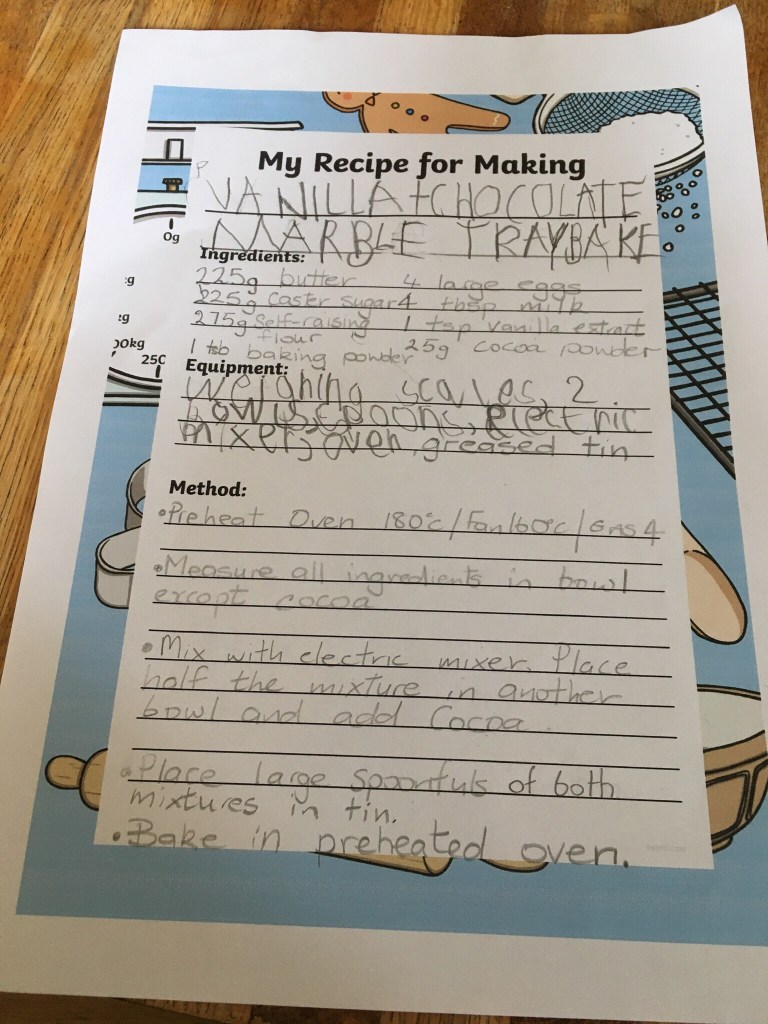 My Recipe for Making
VANILLA + CHOCOLATE
MARBLE TRAYBAKE
Ingredients:
225g butter 4 large eggs
225g Caster sugar 4 tbsp milk
275g Self-raising 1 tsp vanilla extract
flour
1 tsb baking powder 25g cocoa powder
Equipment:
weighing scales, 2
bowls, spoons, electric
mixer, oven, greased tin
Method:
•Preheat Oven 180°c/Fan160°c/GAS 4
•Measure all ingredients in bowl
except cocoa
•Mix with electric mixer. Place
half the mixture in another
bowl and add Cocoa.
•Place large Spoonfuls of both
mixtures in tin.
•Bake in preheated oven.
0g
:g
:g
00kg
250